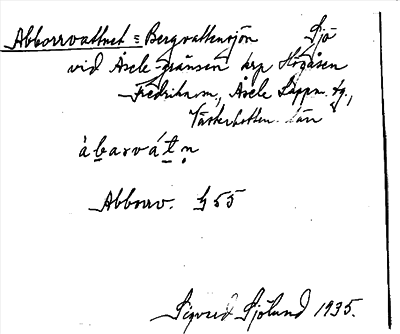 Abborrvattnet = Bergvattensjön Sjö
vid Åsele-gränsen äsp Högåsen
Fredrika sn, Åsele Lappm. tg.,
Västerbotten. län
àbarvát̠n̥
Abborrv. § 55
Sigurd Sjölund 1935.